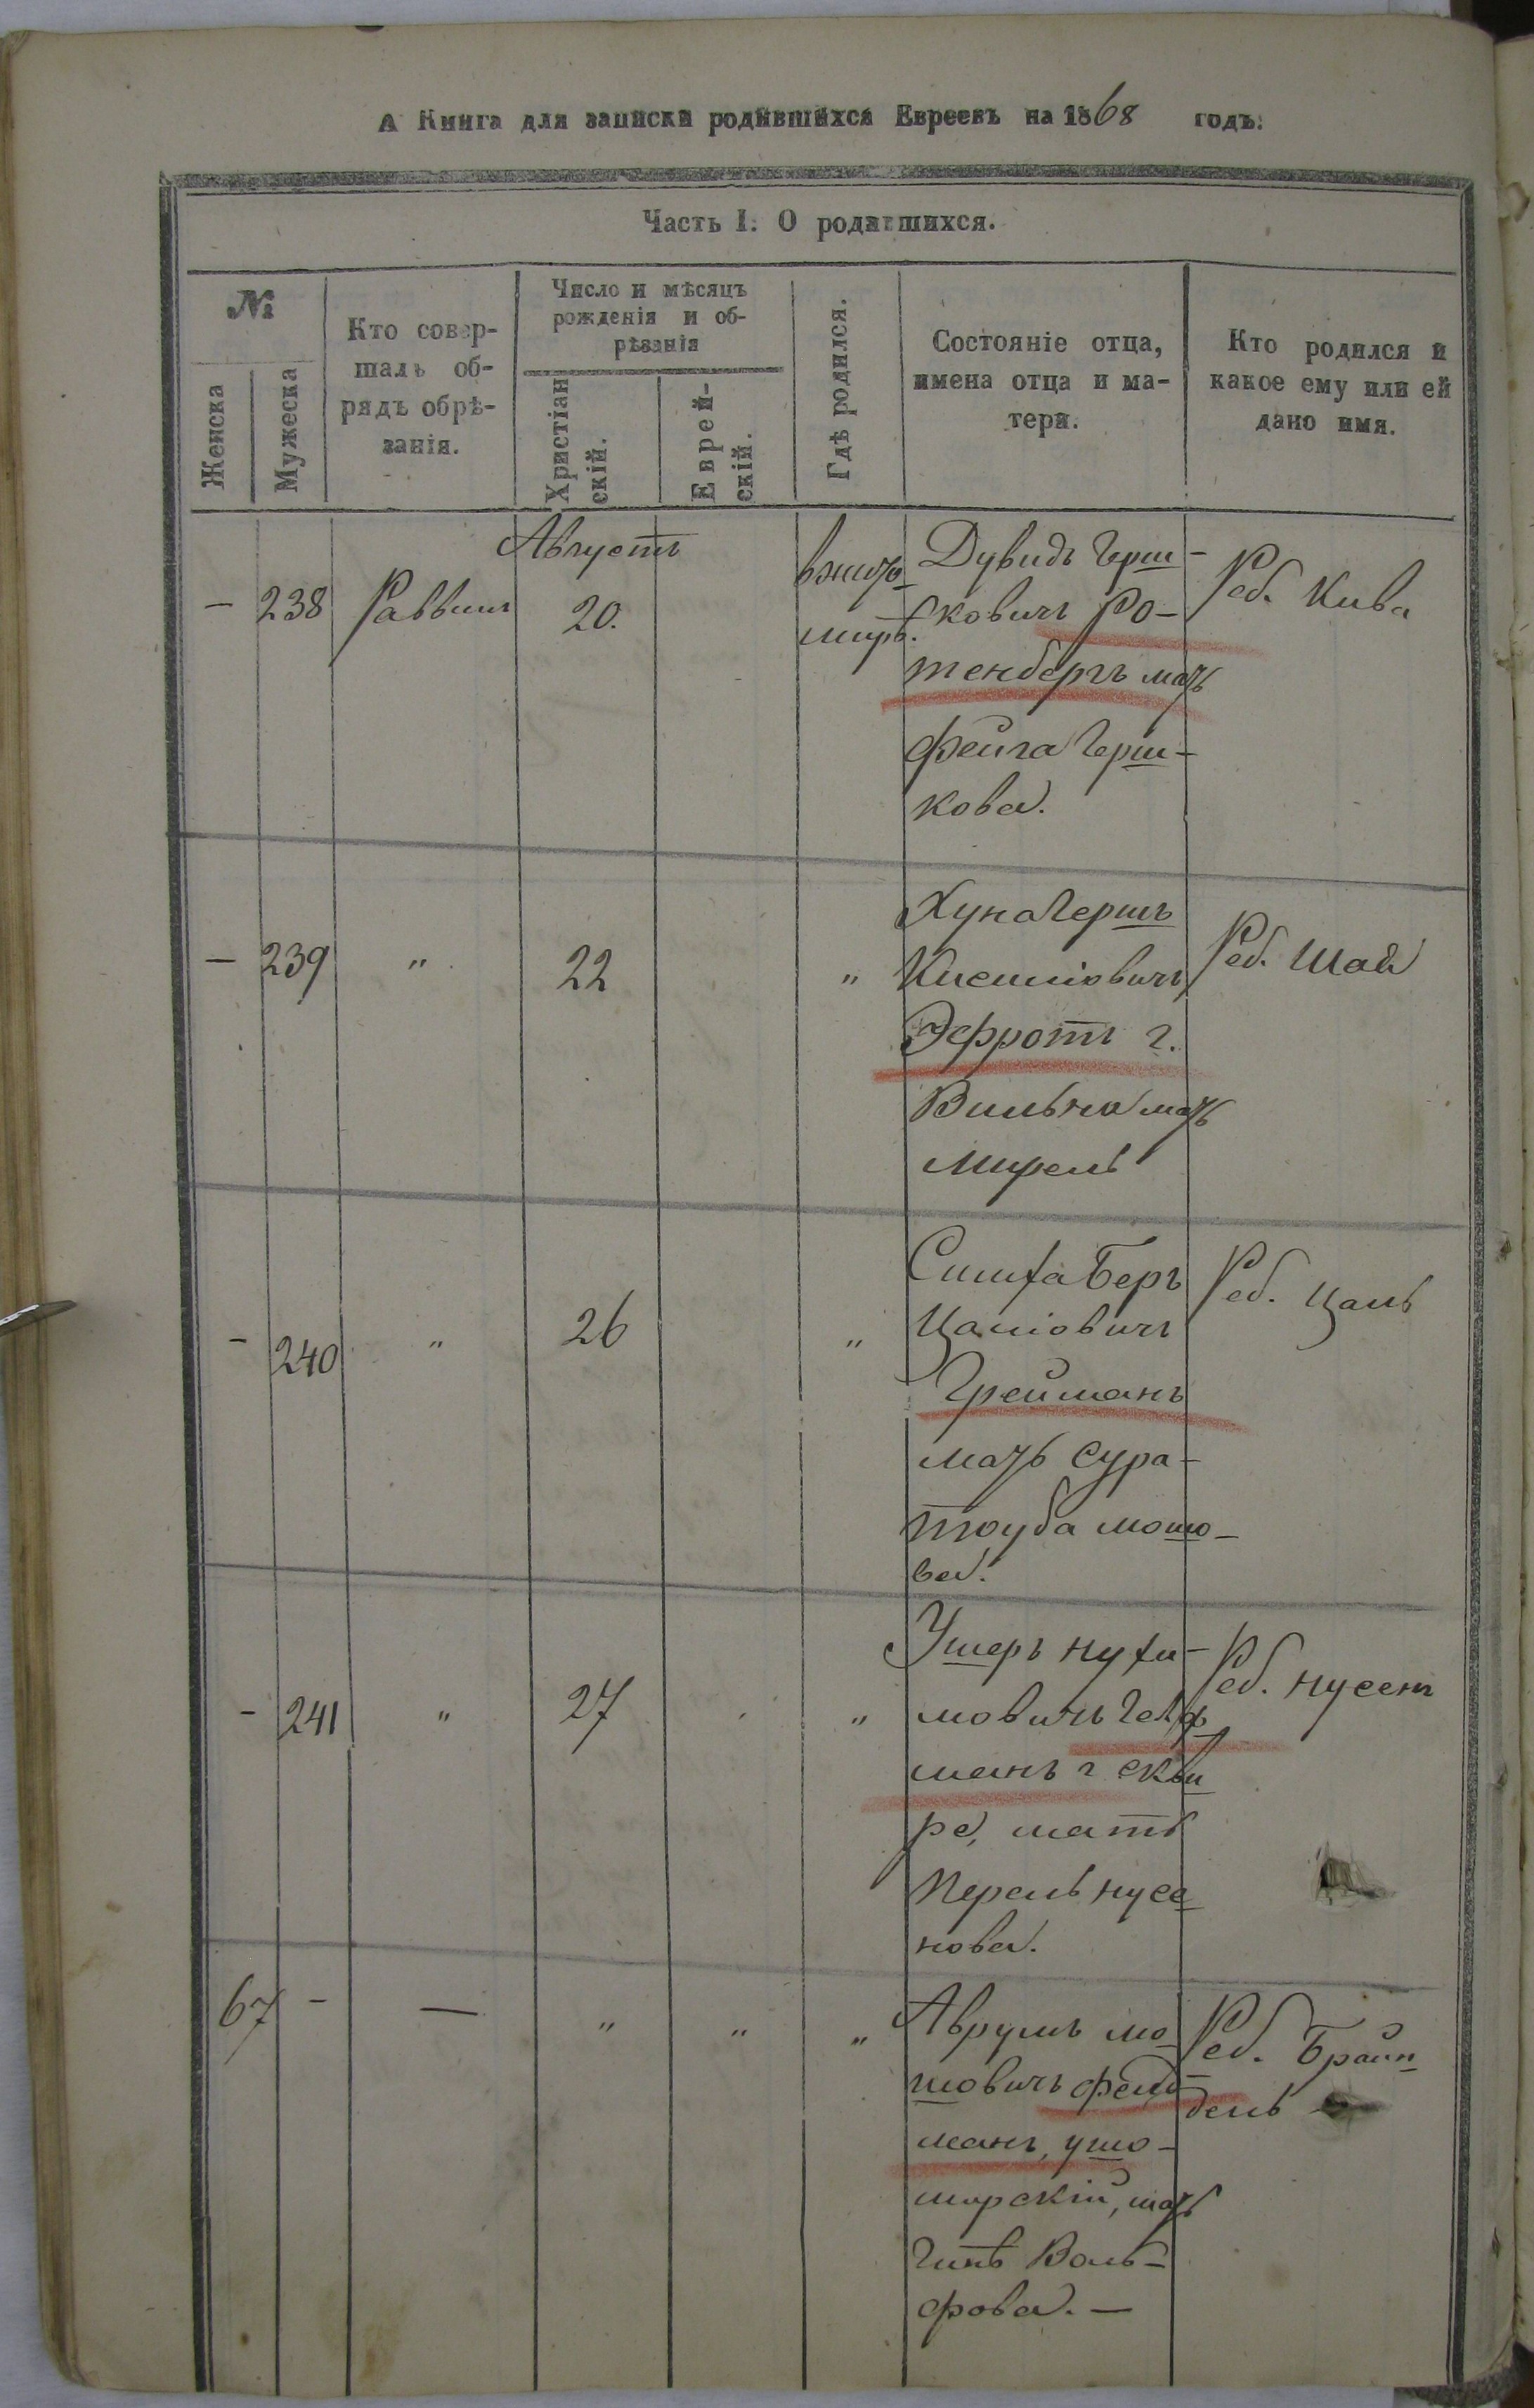 А Книга для записки родившихся Евреевъ на 1868 годъ.
Часть I. О родившихся.
№
Женска
Мужеска
Кто совер-
шалъ об-
рядъ обрѣ-
занія.
Число и мѣсяцъ
рожденія и об-
рѣзанія
Христіан
скій.
Еврей-
скій.
Гдѣ родился.
Состояніе отца,
имена отца и ма-
тери.
Кто родился и
какое ему или ей
дано имя.
Августъ
— 238 Раввинъ 20.
вжито
мирѣ.
Дувидъ Герш-
ковичъ Ро-
тенбергъ мать
Фейга Герш-
кова.
Реб. Кива
— 239 " 22 "
Хуна Гершъ
Кисиліовичъ
Эфротъ г.
Вильна мать
Мирель
Реб. Шая
- 240 " 26 "
Симха Беръ
Цаліовичъ
Грейманъ
мать Сура-
Тауба Мошо-
ва.
Реб. Цаль
- 241 " 27 "
Ушеръ Нухи-
мовичъ Гелф
манъ г Скви
ре, мать
Перель Нусе
нова.
Реб. Нусенъ
67 - — " " "
Аврумъ Мо
шовичъ Фельд-
манъ, ушо-
мирскій, мать
Гитѣ Воль-
фова. —
Реб. Брайн
дель